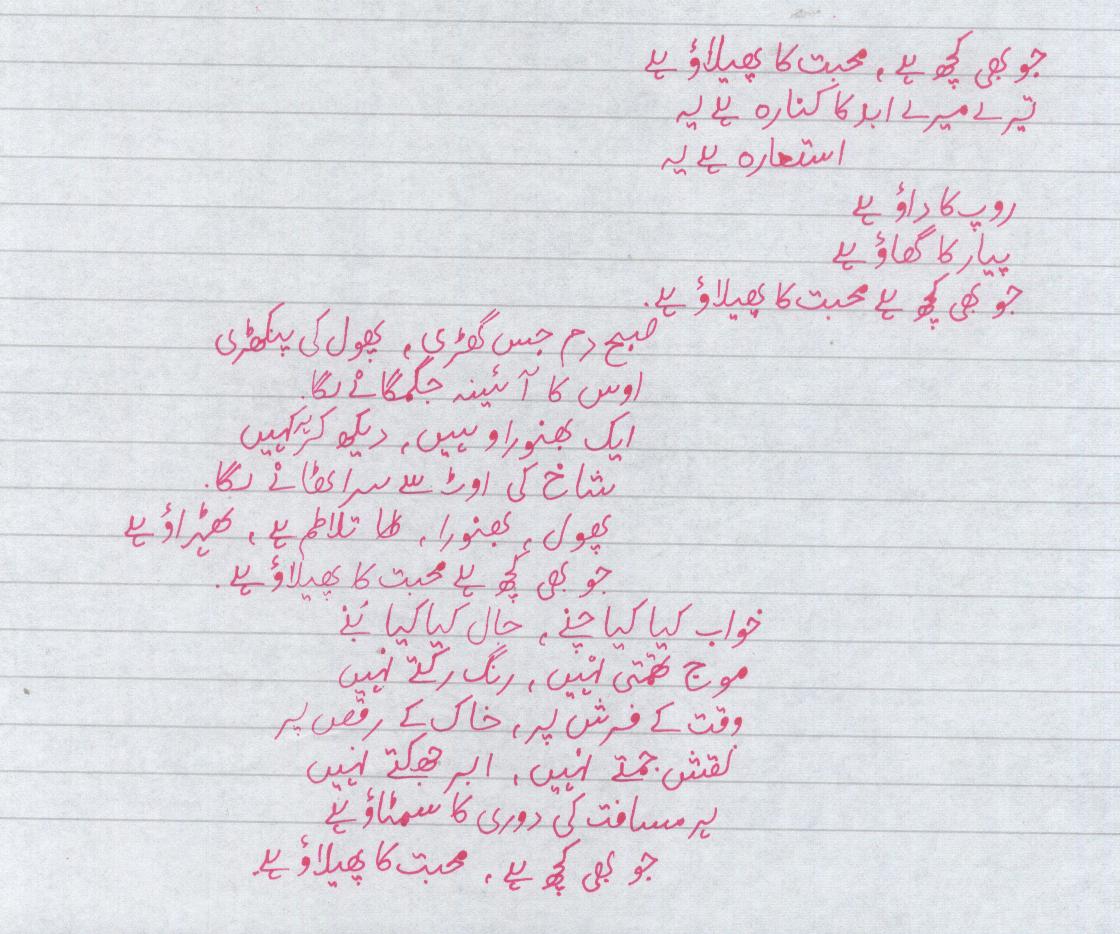 جو بھی کچھ ہے، محبت کا پھیلاؤ ہے
تیرے میرے ابد کا کنارہ ہے یہ
استعارہ ہے یہ
روپ کا داؤ ہے
پیار کا گھاؤ ہے
جو بھی کچھ ہے محبت کا پھیلاؤ ہے۔
صبح دم جس گھڑی، پھول کی پنکھڑی
اوس کا آئینہ جگمگانے لگا۔
ایک بھنورا وہیں، دیکھ کر کہیں
شاخ کی اوٹ سے سر اٹھانے لگا۔
پھول، بھنورا، تلاطم ہے، ٹھہراؤ ہے
جو بھی کچھ ہے محبت کا پھیلاؤ ہے۔
خواب کیا کیا چنے، جال کیا کیا بُنے
موج تھمتی نہیں، رنگ رکتے نہیں
وقت کے فرش پر، خاک کے رقص پر
نقش جمتے نہیں، ابر جھکتے نہیں
ہر مسافت کی دوری کا سمٹاؤ ہے
جو بھی کچھ ہے، محبت کا پھیلاؤ ہے۔